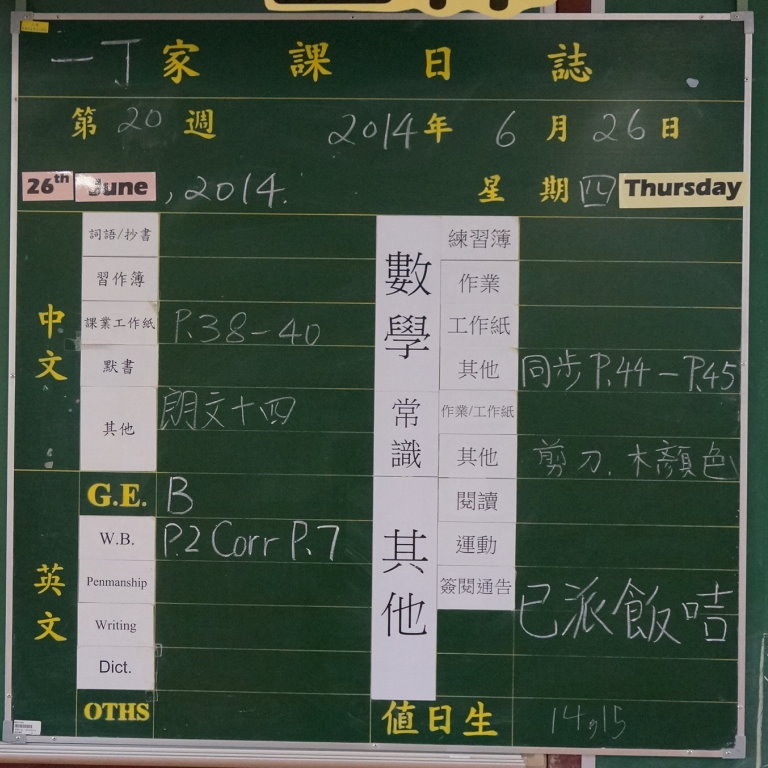 一丁家課日誌
第20週 2014年6月26日
26th June, 2014. 星期四 Thursday
中文
詞語/抄書
習作簿
課業工作紙 P.38-40
默書
其他 朗文十四
英文
G.E. B
W.B. P.2 Corr P.7
Penmanship
Writing
Dict.
OTHS
數學
練習簿
作業
工作紙
其他 同步 P.44-P.45
常識
作業/工作紙
其他 剪刀.木顏色
其他
閱讀
運動
簽閱通告 已派飯咭
值日生 14,15